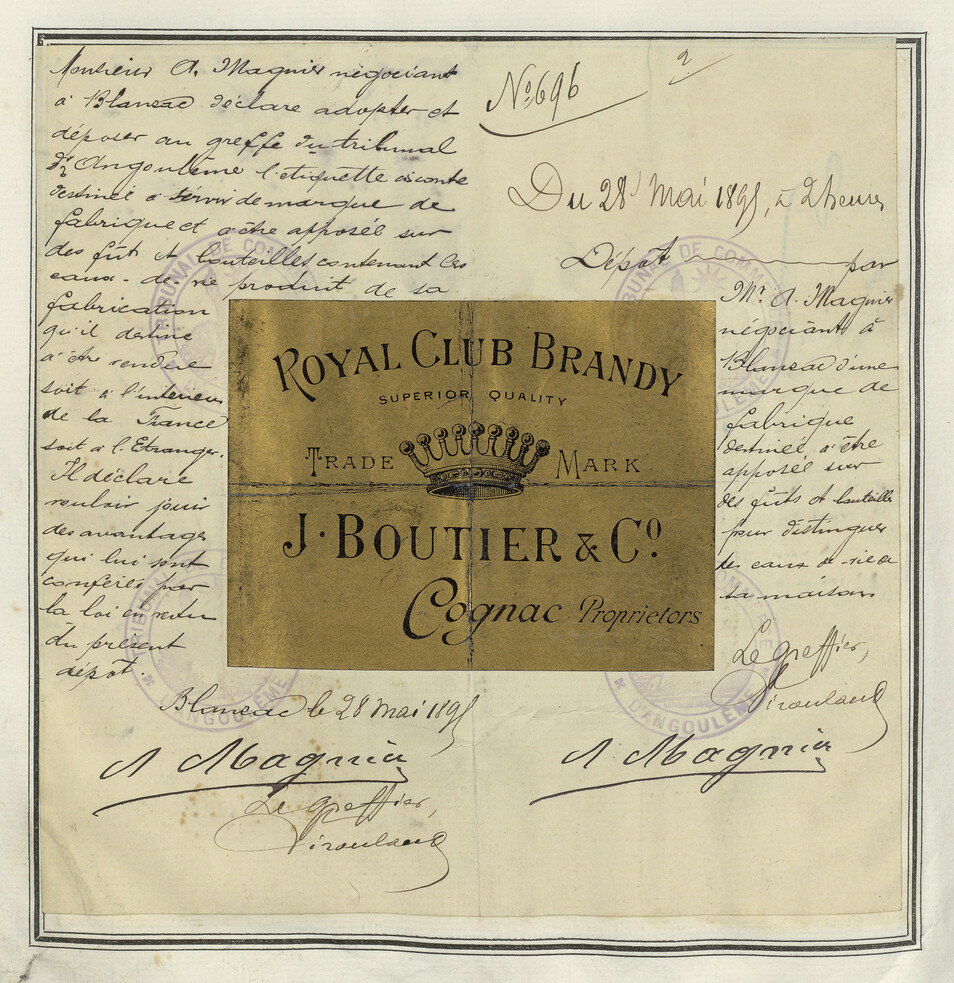 Monsieur A. Magnier négociant
à Blanzac déclare adopter et
déposer au greffe du tribunal
d'Angoulême l'étiquette ci contre
destinée a servir de marque de
fabrique et a être apposée sur
des fût et bouteilles contenant les
eaux-de-vie produit de sa
fabrication
qu'il destine
a être vendre
soit à l'intérieur
de la France
soit à l'Etranger.
Il déclare
vouloir jouir
des avantages
qui lui sont
conférés par
la loi en vertu
du present
dépôt.
Blanzac le 28 mai 1895
A Magnier
Le Greffier,
Nº 696
2
Du 28 Mai 1895, à 2 heures
Dépôt par
Mr. A. Magnier
négociant à
Blanzac d'une
marque de
fabrique
destinée à être
apposée sur
des fûts et bouteilles
pour distinguer
les eaux de-vie de
sa maison
Le Greffier,
A Magnier
ROYAL CLUB BRANDY
SUPERIOR QUALITY
TRADE MARK
J. BOUTIER & Cº.
Cognac Proprietors
TRIBUNAL DE COMMERCE
D'ANGOULÊME
TRIBUNAL DE COMMERCE
D'ANGOULÊME
TRIBUNAL
D'ANGOULÊME
D'ANGOULÊME